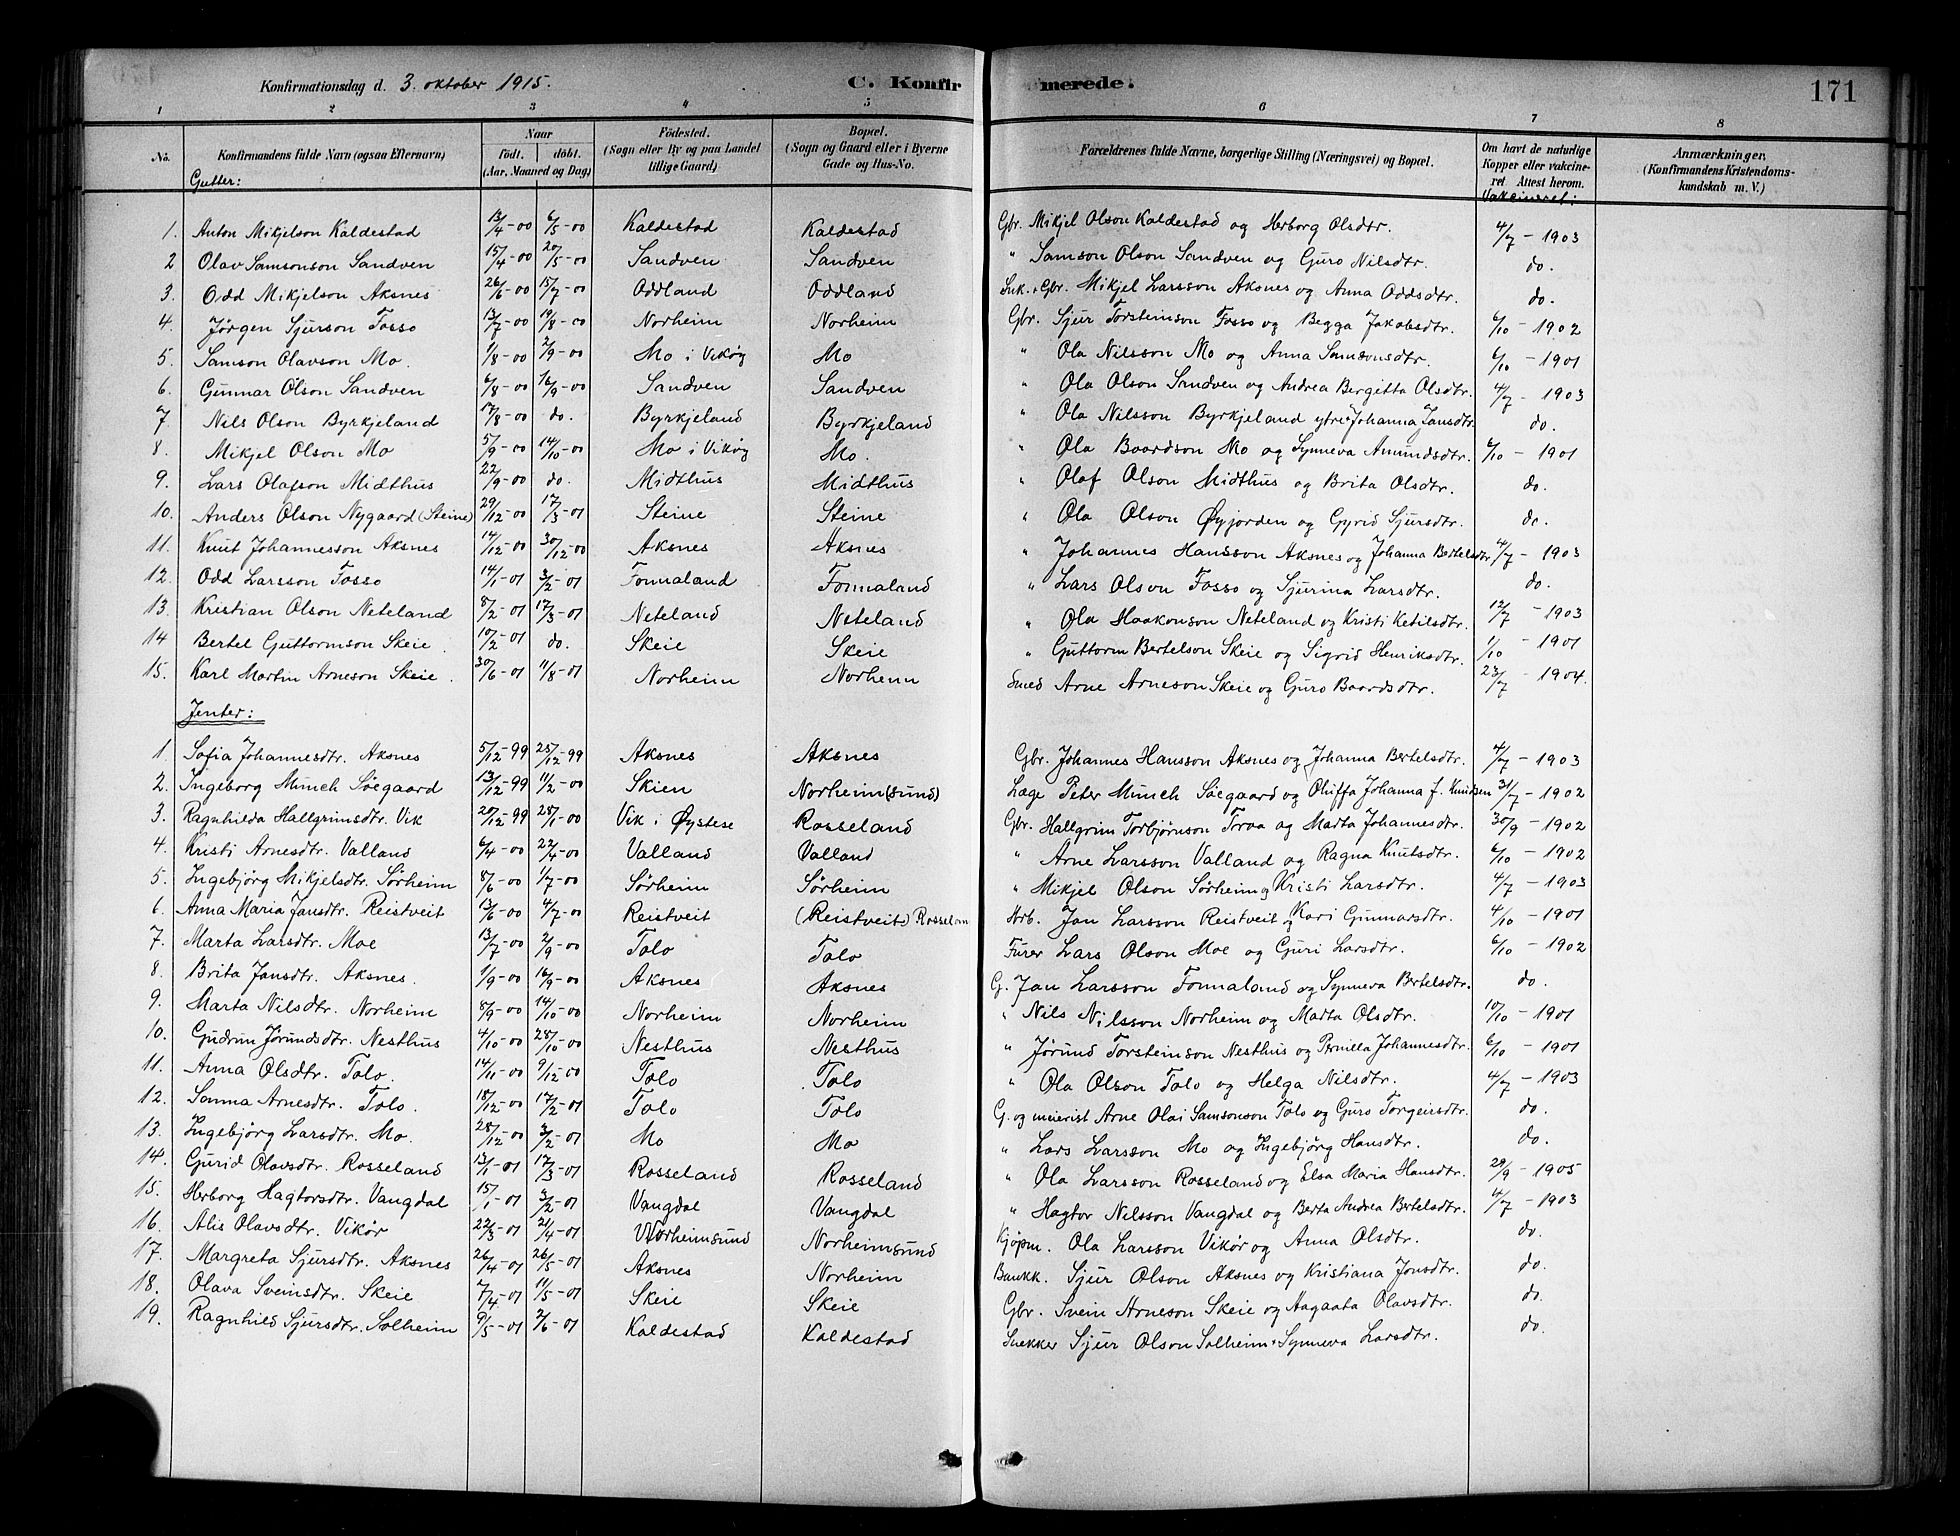 Konfirmationsdag d. 3. oktober 1915. C. Konfirmerede. 171
1 2 3 4 5 6 7 8
No. Konfirmandens fulde Navn (ogsaa Efternavn) Naar født. døbt. (Aar, Maaned og Dag) Fødested. (Sogn eller By og paa Landet tillige Gaard) Bopæl. (Sogn og Gaard eller i Byerne Gade og Hus-No. Forældrenes fulde Navne, borgerlige Stilling (Næringsvei) og Bopæl. Om havt de naturlige Kopper eller vakcineret Attest herom. Anmærkninger. (Konfirmandens Kristendomskundskab m. V.)
Gutter: Vakcineret:
1. Anton Mikjelson Kaldestad 13/4-00 6/5-00 Kaldestad Kaldestad Gbr. Mikjel Olson Kaldestad og Herborg Olsdtr. 4/7-1903
2 Olav Samsonson Sandven 15/4-00 20/5-00 Sandven Sandven " Samson Olson Sandven og Guro Nilsdtr. do.
3. Odd Mikjelson Aksnes 26/6-00 15/7-00 Oddland Oddland Snk. + Gbr. Mikjel Larsson Aksnes og Anna Oddsdtr. do.
4. Jørgen Sjurson Fosso 13/7-00 19/8-00 Norheim Norheim Gbr. Sjur Torsteinson Fosso og Begga Jakobsdtr. 6/10-1902
5. Samson Olavson Mo. 1/8-00 2/9-00 Mo i Vikøy Mo " Ola Nilsson Mo og Anna Samsonsdtr. 6/10-1901
6. Gunnar Olson Sandven 6/8-00 16/9-00 Sandven Sandven " Ola Olson Sandven og Andrea Bergitta Olsdtr. 4/7-1903
7 Nils Olson Byrkjeland 17/8-00 do. Byrkjeland Byrkjeland " Ola Nilsson Byrkjeland ytre + Johanna Jansdtr. do.
8. Mikjel Olson Mo 5/9-00 14/10-00 Mo i Vikøy Mo. " Ola Baardson Mo og Synneva Amundsdtr. 6/10-1901
9. Lars Olafson Midthus 22/9-00 do. Midthus Midthus " Olaf Olson Midthus og Brita Olsdtr. do.
10. Anders Olson Nygaard (Steine) 29/12-00 17/3-01 Steine Steine " Ola Olson Øyjorden og Gyrid Sjursdtr. do.
11. Knut Johannesson Aksnes 14/12-00 30/12-00 Aksnes Aksnes " Johannes Hansson Aksnes og Johanna Bertelsdtr. 4/7-1903
12. Odd Larsson Fosso 14/1-01 3/2-01 Fonnaland Fonnaland " Lars Olson Fosso og Sjurina Larsdtr. do.
13. Kristian Olson Neteland 8/2-01 17/3-01 Neteland Neteland " Ola Haakonson Neteland og Kristi Ketilsdtr. 12/7-1903
14 Bertel Guttormson Skeie 10/2-01 do. Skeie Skeie " Guttorm Bertelson Skeie og Sigrid Henriksdtr. 1/10-1901
15. Karl Martin Arneson Skeie. 30/6-01 11/8-01 Norheim Norheim Smed Arne Arneson Skeie og Guro Baardsdtr. 23/7-1904.
Jenter:
1. Sofia Johannesdtr. Aksnes 5/12-99 25/12-99 Aksnes Aksnes Gbr. Johannes Hansson Aksnes og Johanna Bertelsdtr. 4/7-1903
2. Ingeborg Munch Søegaard 13/12-99 11/2-00 Skien Norheim (sund) Læge Peter Munch Søegaard og Oliffa Johanna f. Knudsen 31/7-1902
3. Ragnhilda Hallgrimsdtr. Vik 20/12-99 28/1-00 Vik i Øystese Rosseland Gbr. Hallgrim Torbjørnson Toraa og Marta Johannesdtr. 30/9-1902
4. Kristi Arnesdtr. Valland 6/4-00 22/4-00 Valland Valland " Arne Larsson Valland og Ragna Knutsdtr. 6/10-1902
5. Ingebjørg Mikjelsdtr. Sørheim 8/6-00 1/7-00 Sørheim Sørheim " Mikjel Olson Sørheim og Kristi Larsdtr. 4/7-1903
6. Anna Maria Jansdtr. Reistveit 13/6-00 4/7-00 Reistveit (Reistveit) Rosselan Arb. Jan Larsson Reistveit og Kari Gunnarsdtr. 4/10-1901
7. Marta Larsdtr. Moe 13/7-00 2/9-00 Tolo Tolo Furer Lars Olson Moe og Guri Larsdtr. 6/10-1902
8. Brita Jansdtr. Aksnes. 1/9-00 16/9-00 Aksnes Aksnes G. Jan Larsson Fonnaland og Synneva Bertelsdtr. do.
9. Marta Nilsdtr. Norheim 8/9-00 14/10-00 Norheim Norheim " Nils Nilsson Norheim og Marta Olsdtr. 10/10-1901
10. Gudrun Jørundsdtr. Nesthus 4/10-00 28/10-00 Nesthus Nesthus " Jørund Torsteinson Nesthus og Pernilla Johannesdtr. 6/10-1901
11. Anna Olsdtr. Tolo. 14/11-00 9/12-00 Tolo Tolo " Ola Olson Tolo og Helga Nilsdtr. 4/7-1903
12. Sanna Arnesdtr. Tolo. 18/12-00 17/2-01 Tolo Tolo G. og meierist Arne Olai Samsonson Tolo og Guro Torgeirsdtr. do.
13. Ingebjørg Larsdtr. Mo. 28/12-00 3/2-01 Mo Mo " Lars Larsson Mo og Ingebjørg Hansdtr. do.
14. Gurid Olavsdtr. Rosseland 13/1-01 17/3-01 Rosseland Rosseland " Ola Larsson Rosseland og Elsa Maria Hansdtr. 29/9-1905
15. Herborg Hagtorsdtr. Vangdal 15/1-01 3/2-01 Vangdal Vangdal " Hagtor Nilsson Vangdal og Berta Andrea Bertelsdtr. 4/7-1903
16. Alis Olavsdtr. Vikør 22/3-01 21/4-01 Norheimsund Norheimsund Kjøpm. Ola Larsson Vikør og Anna Olsdtr. do.
17. Margreta Sjursdtr. Aksnes 26/4-01 26/5-01 Aksnes Norheim Bankk. Sjur Olson Aksnes og Kristiana Jonsdtr. do.
18. Olava Sveinsdtr. Skeie 7/4-01 11/5-01 Skeie Skeie Gbr. Svein Arneson Skeie og Aagaata Olavsdtr. do.
19. Ragnhild Sjursdtr. Solheim 9/5-01 2/6-01 Kaldestad Kaldestad Snekker Sjur Olson Solheim + Synneva Larsdtr. do.